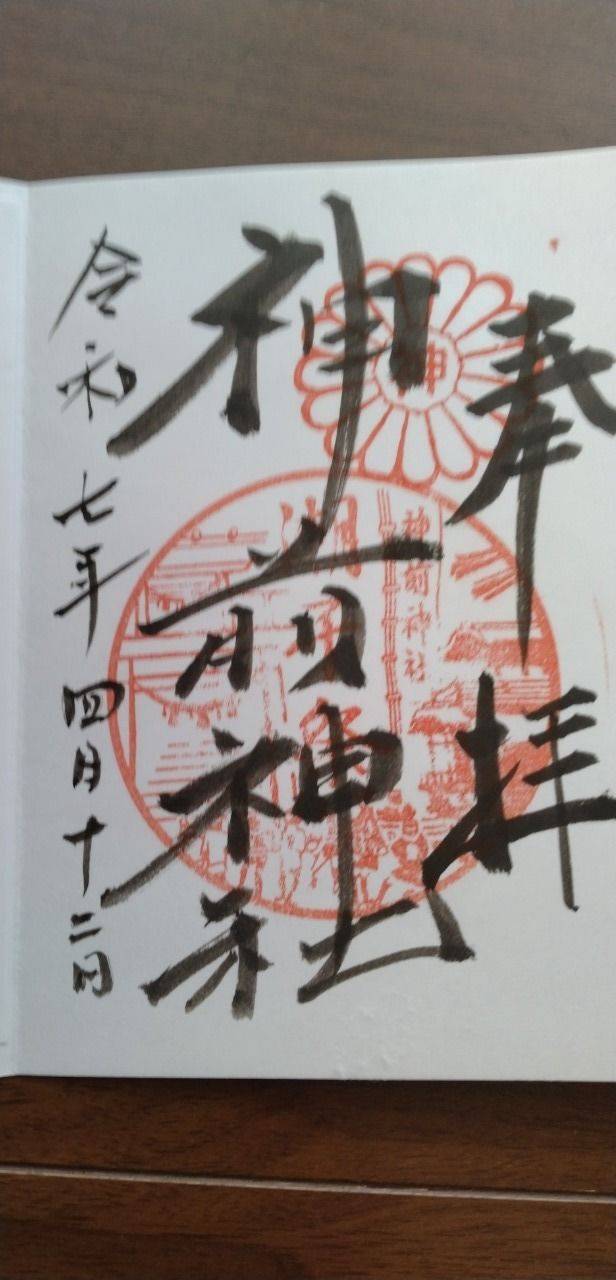 奉拝
神
神前神社
神前神社
令和七年四月十二日